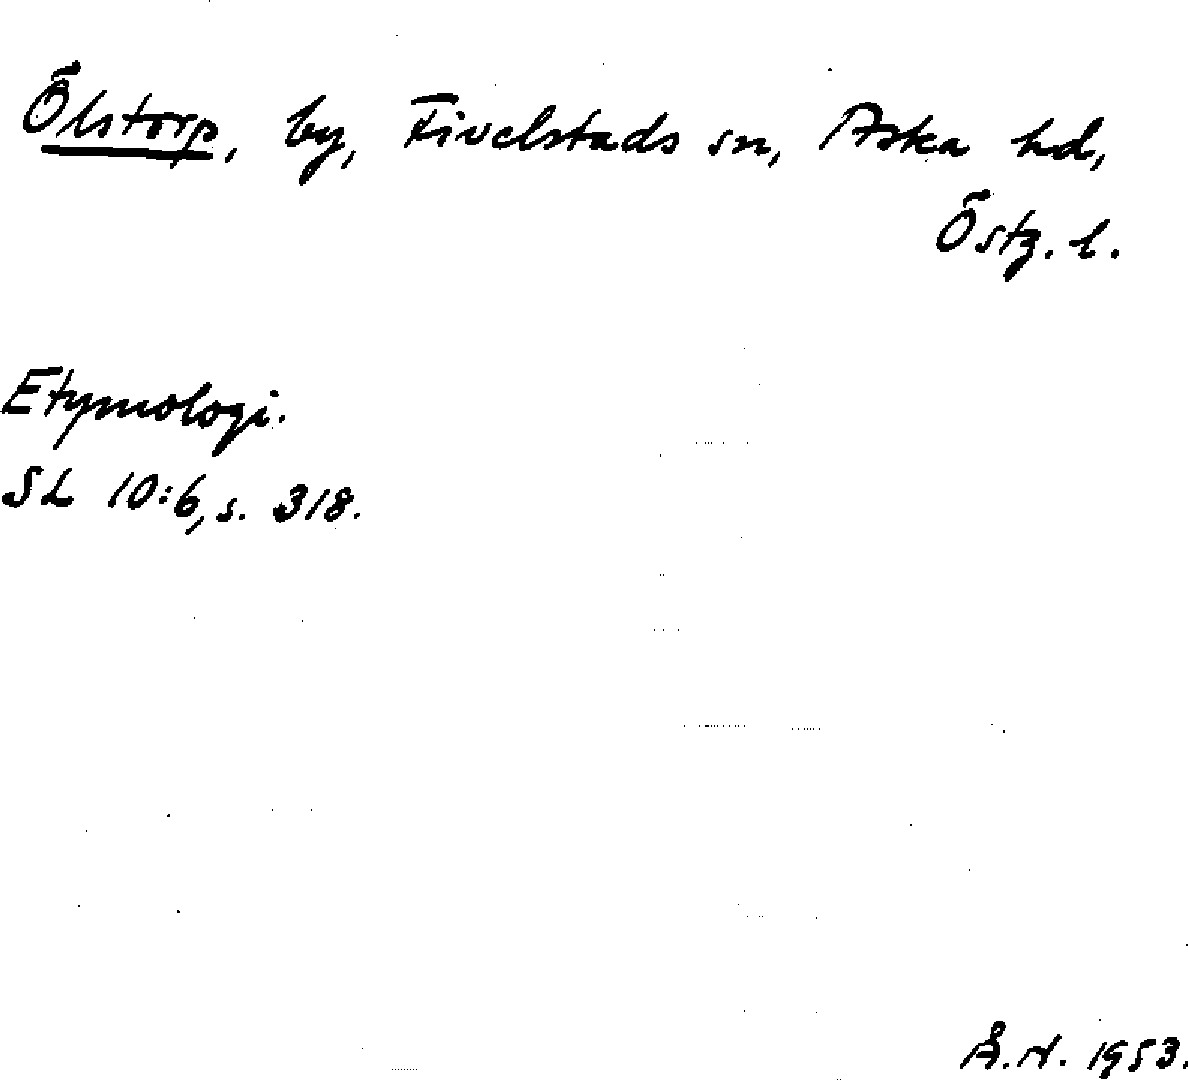 Ölstorp, by, Fivelstads sn, Aska hd,
Östg. l.
Etymologi.
SL 10:6, s. 318.
Å.N. 1953.